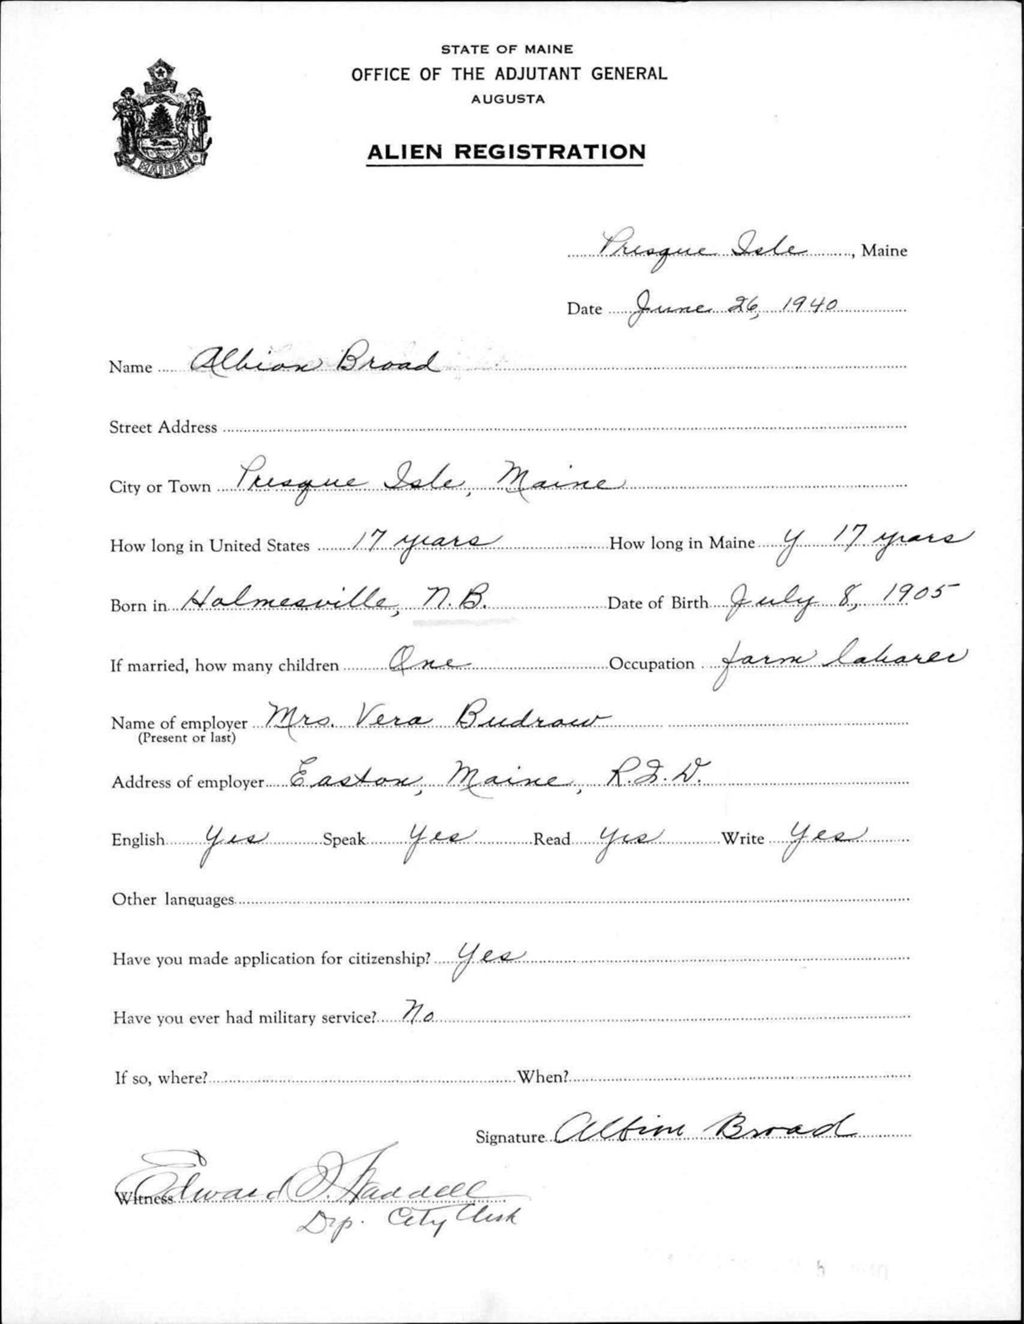 STATE OF MAINE
OFFICE OF THE ADJUTANT GENERAL
AUGUSTA
ALIEN REGISTRATION
MAINE
Presque Isle, Maine
Date June 26, 1940
Name Albion Broad
Street Address
City or Town Presque Isle, Maine
How long in United States 17 years How long in Maine y 17 years
Born in Holmesville, N.B. Date of Birth July 8, 1905
If married, how many children One Occupation farm laborer
Name of employer Mrs. Vera Budrow
(Present or last)
Address of employer Easton, Maine, R.F.D.
English Yes Speak Yes Read Yes Write Yes
Other languages
Have you made application for citizenship? Yes
Have you ever had military service? No
If so, where? When?
Signature Albion Broad
Witness Edward Waddell
Dep. City Clerk